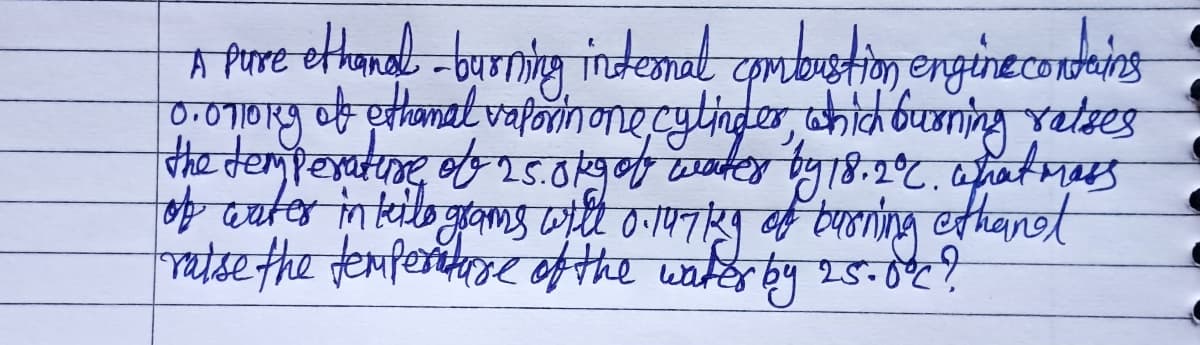 A pure ethanol - burning internal combustion engine contains
0.0710kg of ethanol vapor in one cylinder, which burning raises
the temperature of 25.0kg of water by 18.2°C. what mass
of water in kilograms will 0.147kg of burning ethanol
raise the temperature of the water by 25.0°C?